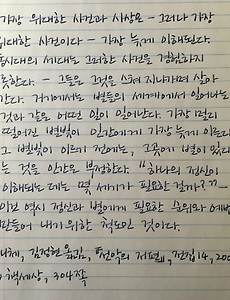 가장 위대한 사건과 사상은 - 그러나 가장
위대한 사상이 사건이다 - 가장 늦게 이해된다.
동시대의 세대는 그러한 사건을 경험하지
못한다. - 그들은 그것을 스쳐 지나가며 살아
간다. 거기에서는 별들의 세계에서 일어나는
것과 같은 어떤 일이 일어난다. 가장 멀리
떨어진 별빛이 인간에게 가장 늦게 이른다
그 별빛이 이르기 전에는, 그곳에 별이 있다
는 것을 인간은 부정한다. "하나의 정신이
이해되는 데는 몇 세기가 필요한 걸까?" -
이것 역시 정신과 별에게 필요한 순위와 예법
만들어 내기 위한 척도인 것이다.
니체, 김정현 옮김, 『선악의 저편』, 전집14, 200
책세상, 304쪽